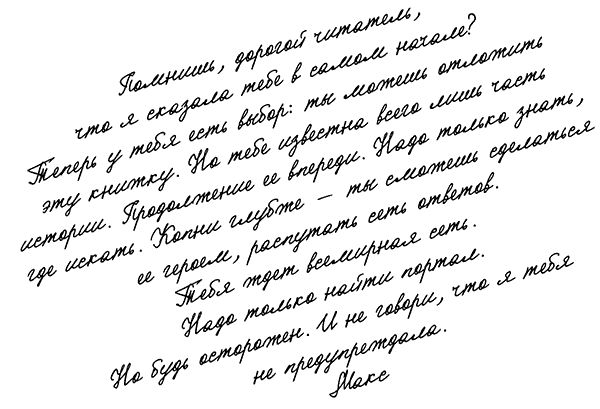 Помнишь, дорогой читатель,
что я сказала тебе в самом начале?
Теперь у тебя есть выбор: ты можешь отложить
эту книжку. Но тебе известна всего лишь часть
истории. Продолжение ее впереди. Надо только знать,
где искать. Копни глубже — ты сможешь сделаться
ее героем, распутать сеть ответов.
Тебя ждет всемирная сеть.
Надо только найти портал.
Но будь осторожен. И не говори, что я тебя
не предупреждала.
Макс